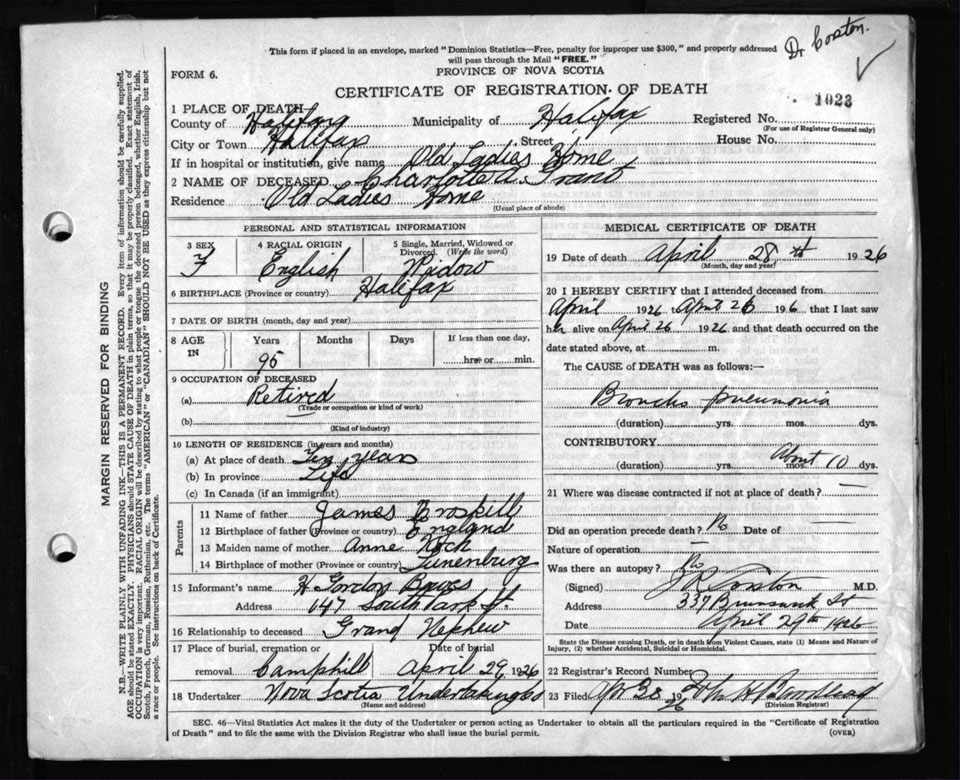 Dr Corston.
This form if placed in an envelope, marked "Dominion Statistics—Free, penalty for improper use $300," and properly addressed
will pass through the Mail "FREE."
FORM 6.
PROVINCE OF NOVA SCOTIA
CERTIFICATE OF REGISTRATION OF DEATH
1023
1 PLACE OF DEATH
County of Halifax Municipality of Halifax Registered No.
(For use of Registrar General only)
City or Town Halifax Street House No.
If in hospital or institution, give name Old Ladies Home
2 NAME OF DECEASED Charlotte A. Grant
Residence Old Ladies Home
(Usual place of abode)
MARGIN RESERVED FOR BINDING
N.B.—WRITE PLAINLY WITH UNFADING INK—THIS IS A PERMANENT RECORD. Every item of information should be carefully supplied.
AGE should be stated EXACTLY. PHYSICIANS should STATE CAUSE OF DEATH in plain terms, so that it may be properly classified. Exact statement of
OCCUPATION is very important. RACIAL ORIGIN will be described by stating to what people or tongue the deceased person belonged, whether English, Irish,
Scotch, French, German, Russian, Ruthenian, etc. The terms "AMERICAN" or "CANADIAN" SHOULD NOT BE USED as they express citizenship but not
a race or people. See instructions on back of Certificate.
PERSONAL AND STATISTICAL INFORMATION
3 SEX
F
4 RACIAL ORIGIN
English
5 Single, Married, Widowed or
Divorced. (Write the word)
Widow
6 BIRTHPLACE (Province or country) Halifax
7 DATE OF BIRTH (month, day and year)
8 AGE IN
Years Months Days If less than one day,
95 hrs. or min.
9 OCCUPATION OF DECEASED
(a) Retired
(Trade or occupation or kind of work)
(b)
(Kind of industry)
10 LENGTH OF RESIDENCE (in years and months)
(a) At place of death Ten years
(b) In province Life
(c) In Canada (if an immigrant)
Parents
11 Name of father James
12 Birthplace of father (Province or country) England
13 Maiden name of mother Anne
14 Birthplace of mother (Province or country) Lunenburg
15 Informant's name H Gordon
Address 147 South Park St.
16 Relationship to deceased Grand Nephew
17 Place of burial, cremation or Date of burial
removal Camphill April 29, 1926
18 Undertaker Nova Scotia Undertaking Co
(Name and address)
MEDICAL CERTIFICATE OF DEATH
19 Date of death April 28th 1926
(Month, day and year)
20 I HEREBY CERTIFY that I attended deceased from
April 1926, April 26 1926 that I last saw
her alive on April 26 1926 and that death occurred on the
date stated above, at m.
The CAUSE of DEATH was as follows:—
Broncho pneumonia
(duration) yrs. mos. dys.
CONTRIBUTORY
(duration) yrs. mos. About 10 dys.
21 Where was disease contracted if not at place of death? —
Did an operation precede death? No Date of —
Nature of operation —
Was there an autopsy? No
(Signed) J R Corston M.D.
Address 337 Brunswick St
Date April 29th 1926
State the Disease causing Death, or in death from Violent Causes, state (1) Means and Nature of
Injury, (2) whether Accidental, Suicidal or Homicidal.
22 Registrar's Record Number
23 Filed 1926
(Division Registrar)
SEC. 46—Vital Statistics Act makes it the duty of the Undertaker or person acting as Undertaker to obtain all the particulars required in the "Certificate of Registration
of Death" and to file the same with the Division Registrar who shall issue the burial permit.
(OVER)